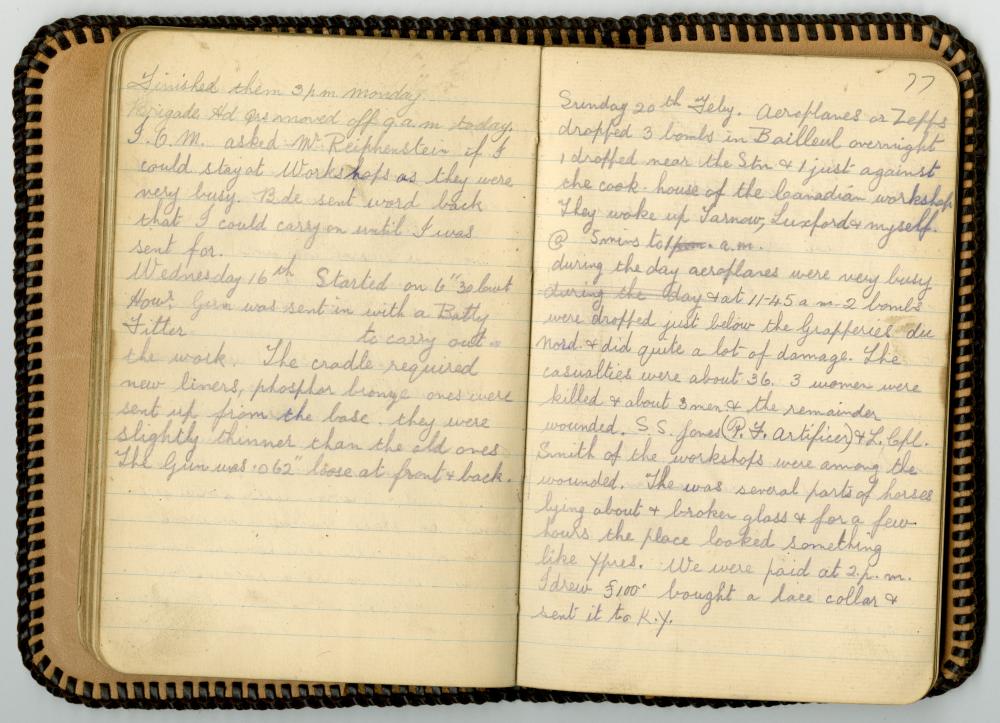 Finished them 3 pm monday.
Brigade Hd Qrs moved off 9 a.m today.
I.O.M. asked Mr Reiphenstein if I
could stay at Workshops as they were
very busy. Bde sent word back
that I could carry on until I was
sent for.
Wednesday 16th Started on 6" 30 cwt
Howr. Gun was sent in with a Batty
Fitter to carry out
the work. The cradle required
new liners, phosphor bronze ones were
sent up from the base. they were
slightly thinner than the old ones
The Gun was .062" loose at front & back.
77
Sunday 20th Feby. Aeroplanes or Zepps
dropped 3 bombs in Bailleul overnight
1 dropped near the Stn & 1 just against
the cook-house of the Canadian workshop
They woke up Tarnow, Luxford & myself.
@ 5 mins to 1 pm. a.m.
during the day aeroplanes were very busy
during the day & at 11-45 a m 2 bombs
were dropped just below the Grapperies du
Nord. & did quite a lot of damage. The
casualties were about 36. 3 women were
killed & about 3 men & the remainder
wounded. S.S. Jones (P.F. Artificer) & L. Cpl.
Smith of the workshops were among the
wounded. The was several parts of horses
lying about & broken glass & for a few
hours the place looked something
like Ypres. We were paid at 2. p. m.
I drew 100 bought a lace collar &
sent it to K.Y.